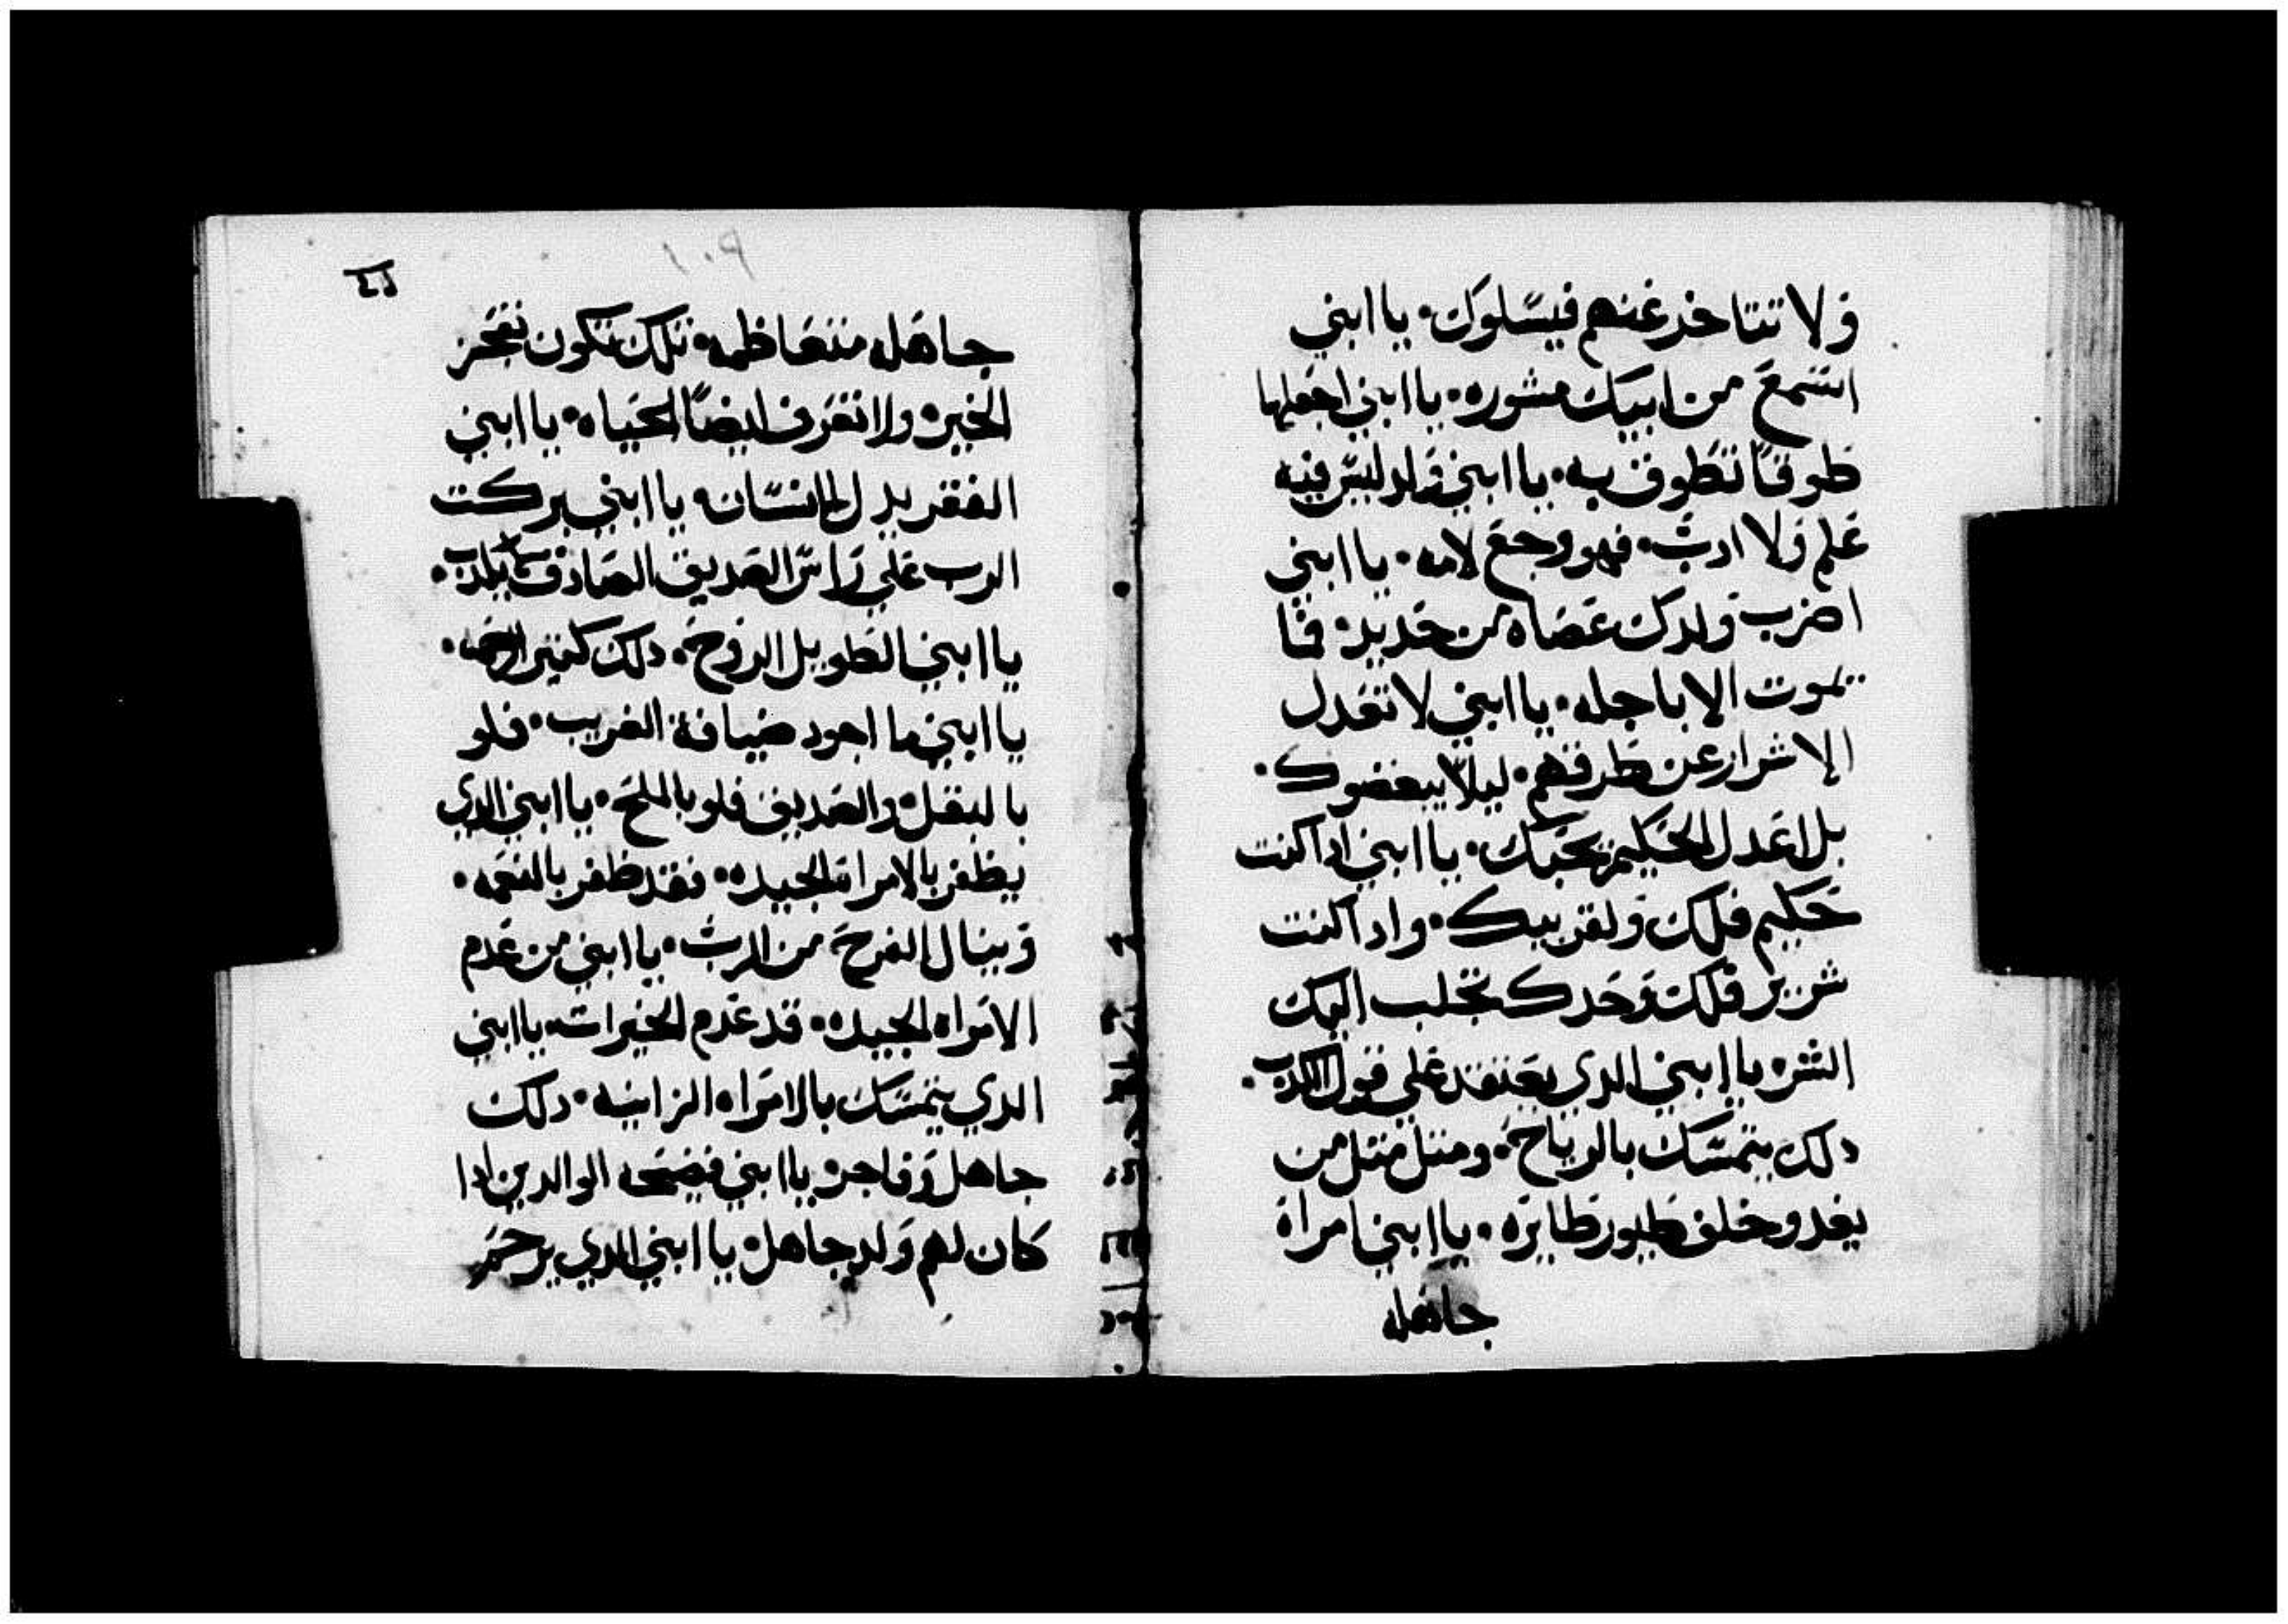 ولا تتاخر عنهم فيسلوك· يا ابني
استمع من ابيك مشوره· يا ابني اجعلها
طوقا تطوق به· يا ابني ولد ليس فيه
علم ولا ادب· فهو وجع لامه· يا ابني
اضرب ولدك عصاه من حديد· فما
يموت الا باجله· يا ابني لا تعدل
الاشرار عن طرقهم· ليلا يبغضوك·
بل اعدل الحكيم يحبك· يا ابني ادا كنت
حكيم فلك ولقريبك· وادا كنت
شرير فلك وحدك تجلب اليك
الشر· يا ابني الدي يعتقد علي قول الكدب·
دلك يتمسك بالرياح· ومتل متل من
يغدو خلف طيور طايره· يا ابني امراة
جاهله
جاهله متعاظمه· تلك تكون تعجز
الخبز· ولا تعرف ايضا الحياه· يا ابني
الفقر يدل الانسان· يا ابني بركت
الرب علي راس الصديق الصادق
يا ابني الطويل الروح· دلك كتير
يا ابني ما اجود ضيافة الغريب· فلو
بالبقل· والصديق فلو بالملح· يا ابني الدي
يظفر بالامراة الجيده· فقد ظفر بالنعمه·
وينال الفرح من الرب· يا ابني من عدم
الامراه الجيده· قد عدم الخيرات· يا ابني
الدي يتمسك بالامراه الزانيه· دلك
جاهل وفاجر· يا ابني فيضحه الوالدين ادا
كان لهم ولد جاهل· يا ابني الدي يرحم